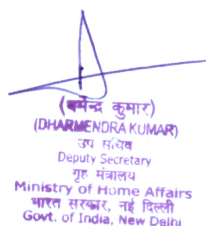 (धर्मेन्द्र कुमार)
(DHARMENDRA KUMAR)
उप सचिव
Deputy Secretary
गृह मंत्रालय
Ministry of Home Affairs
भारत सरकार, नई दिल्ली
Govt. of India, New Delhi